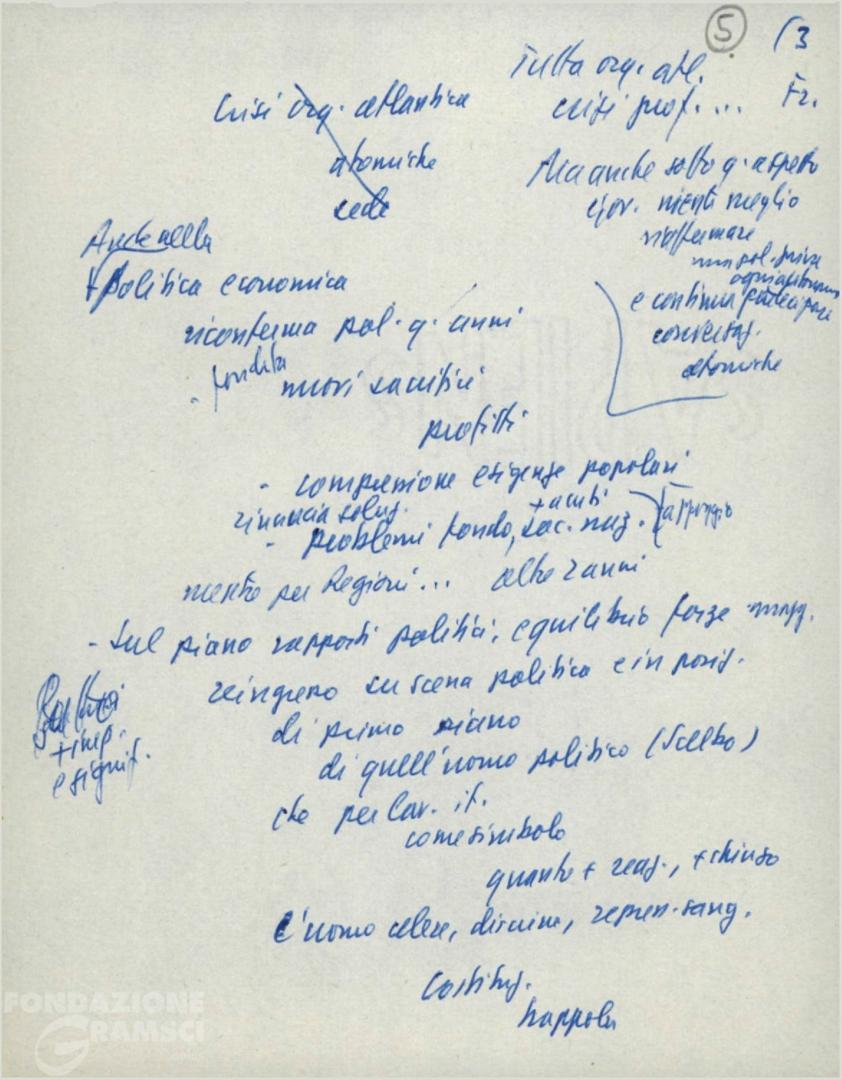 5 (3
Tutta org. atl.
crisi prof. ... Fr.
Crisi org. atlantica
atomiche
sede
Ma anche sotto q. aspetto
gov. niente meglio
riaffermare
una pol. priva
ogni autonomia
e continua partecipare
conversaz.
atomiche
Anche nella
+ politica economica
riconferma pol. q. anni
- fondata
nuovi sacrifici
profitti
- compressione esigenze popolari
rinuncia soluz. + acuti
- problemi fondo, soc. naz. (appoggio
mento per Regioni... altre 2 anni
- Sul piano rapporti politici, equilibrio forze magg.
reingresso su scena politica e in posiz.
di primo piano
+ imp.
e signif.
di quell'uomo politico (Scelba)
che per lav. it.
come simbolo
quanto + reaz., + chiuso
l'uomo celere, discrim., repres. sang.
Costituz.
trappola
FONDAZIONE
GRAMSCI